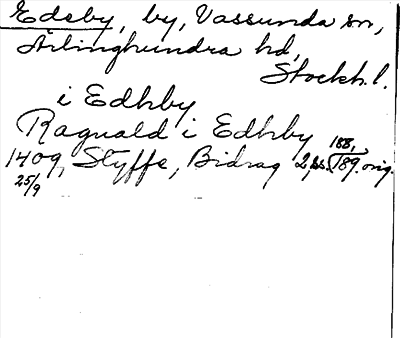 Edsby, by, Vassunda sn,
Ärlinghundra hd,
Stockh. l.
i Edhby
Ragnald i Edhby
1409, Styffe, Bidrag 2, ss. 188, 189. orig.
25/9